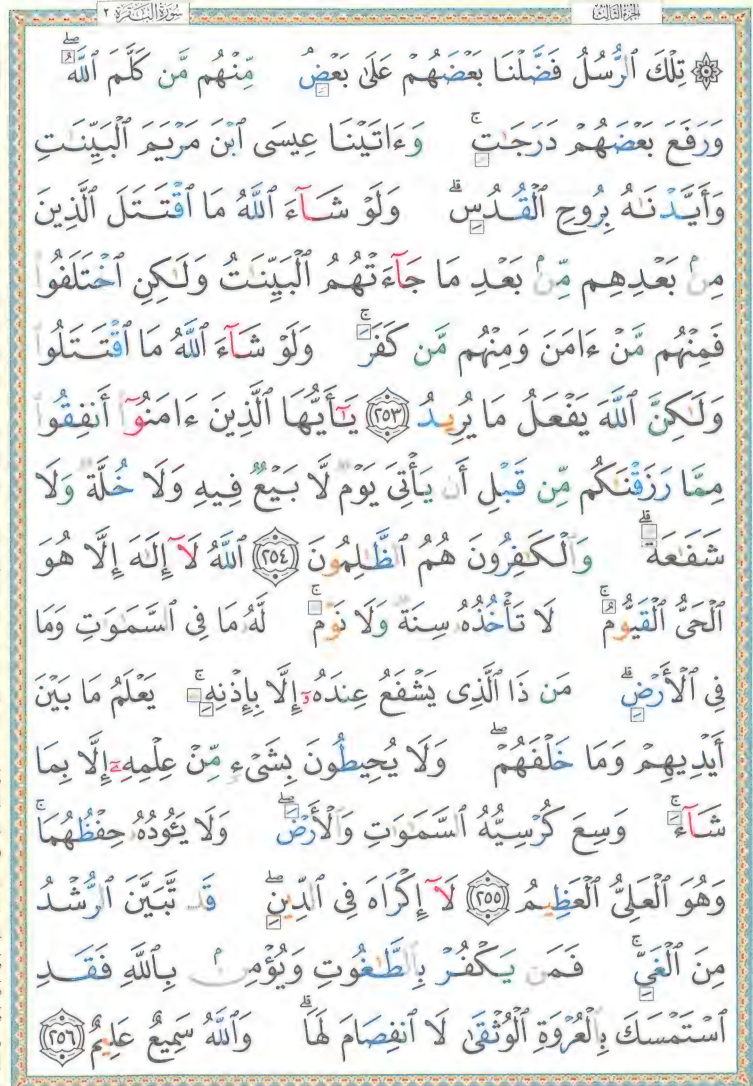 الجزء الثالث
سورة البقرة ٢
۞ تِلْكَ ٱلرُّسُلُ فَضَّلْنَا بَعْضَهُمْ عَلَىٰ بَعْضٍ مِّنْهُم مَّن كَلَّمَ ٱللَّهُ ۖ
وَرَفَعَ بَعْضَهُمْ دَرَجَٰتٍ ۚ وَءَاتَيْنَا عِيسَى ٱبْنَ مَرْيَمَ ٱلْبَيِّنَٰتِ
وَأَيَّدْنَٰهُ بِرُوحِ ٱلْقُدُسِ ۗ وَلَوْ شَآءَ ٱللَّهُ مَا ٱقْتَتَلَ ٱلَّذِينَ
مِنۢ بَعْدِهِم مِّنۢ بَعْدِ مَا جَآءَتْهُمُ ٱلْبَيِّنَٰتُ وَلَٰكِنِ ٱخْتَلَفُوا۟
فَمِنْهُم مَّنْ ءَامَنَ وَمِنْهُم مَّن كَفَرَ ۚ وَلَوْ شَآءَ ٱللَّهُ مَا ٱقْتَتَلُوا۟
وَلَٰكِنَّ ٱللَّهَ يَفْعَلُ مَا يُرِيدُ ٢٥٣ يَٰٓأَيُّهَا ٱلَّذِينَ ءَامَنُوٓا۟ أَنفِقُوا۟
مِمَّا رَزَقْنَٰكُم مِّن قَبْلِ أَن يَأْتِىَ يَوْمٌ لَّا بَيْعٌ فِيهِ وَلَا خُلَّةٌ وَلَا
شَفَٰعَةٌ ۗ وَٱلْكَٰفِرُونَ هُمُ ٱلظَّٰلِمُونَ ٢٥٤ ٱللَّهُ لَآ إِلَٰهَ إِلَّا هُوَ
ٱلْحَىُّ ٱلْقَيُّومُ ۚ لَا تَأْخُذُهُۥ سِنَةٌ وَلَا نَوْمٌ ۚ لَّهُۥ مَا فِى ٱلسَّمَٰوَٰتِ وَمَا
فِى ٱلْأَرْضِ ۗ مَن ذَا ٱلَّذِى يَشْفَعُ عِندَهُۥٓ إِلَّا بِإِذْنِهِۦ ۚ يَعْلَمُ مَا بَيْنَ
أَيْدِيهِمْ وَمَا خَلْفَهُمْ ۖ وَلَا يُحِيطُونَ بِشَىْءٍ مِّنْ عِلْمِهِۦٓ إِلَّا بِمَا
شَآءَ ۚ وَسِعَ كُرْسِيُّهُ ٱلسَّمَٰوَٰتِ وَٱلْأَرْضَ ۖ وَلَا يَـُٔودُهُۥ حِفْظُهُمَا ۚ
وَهُوَ ٱلْعَلِىُّ ٱلْعَظِيمُ ٢٥٥ لَآ إِكْرَاهَ فِى ٱلدِّينِ ۖ قَد تَّبَيَّنَ ٱلرُّشْدُ
مِنَ ٱلْغَىِّ ۚ فَمَن يَكْفُرْ بِٱلطَّٰغُوتِ وَيُؤْمِنۢ بِٱللَّهِ فَقَدِ
ٱسْتَمْسَكَ بِٱلْعُرْوَةِ ٱلْوُثْقَىٰ لَا ٱنفِصَامَ لَهَا ۗ وَٱللَّهُ سَمِيعٌ عَلِيمٌ ٢٥٦